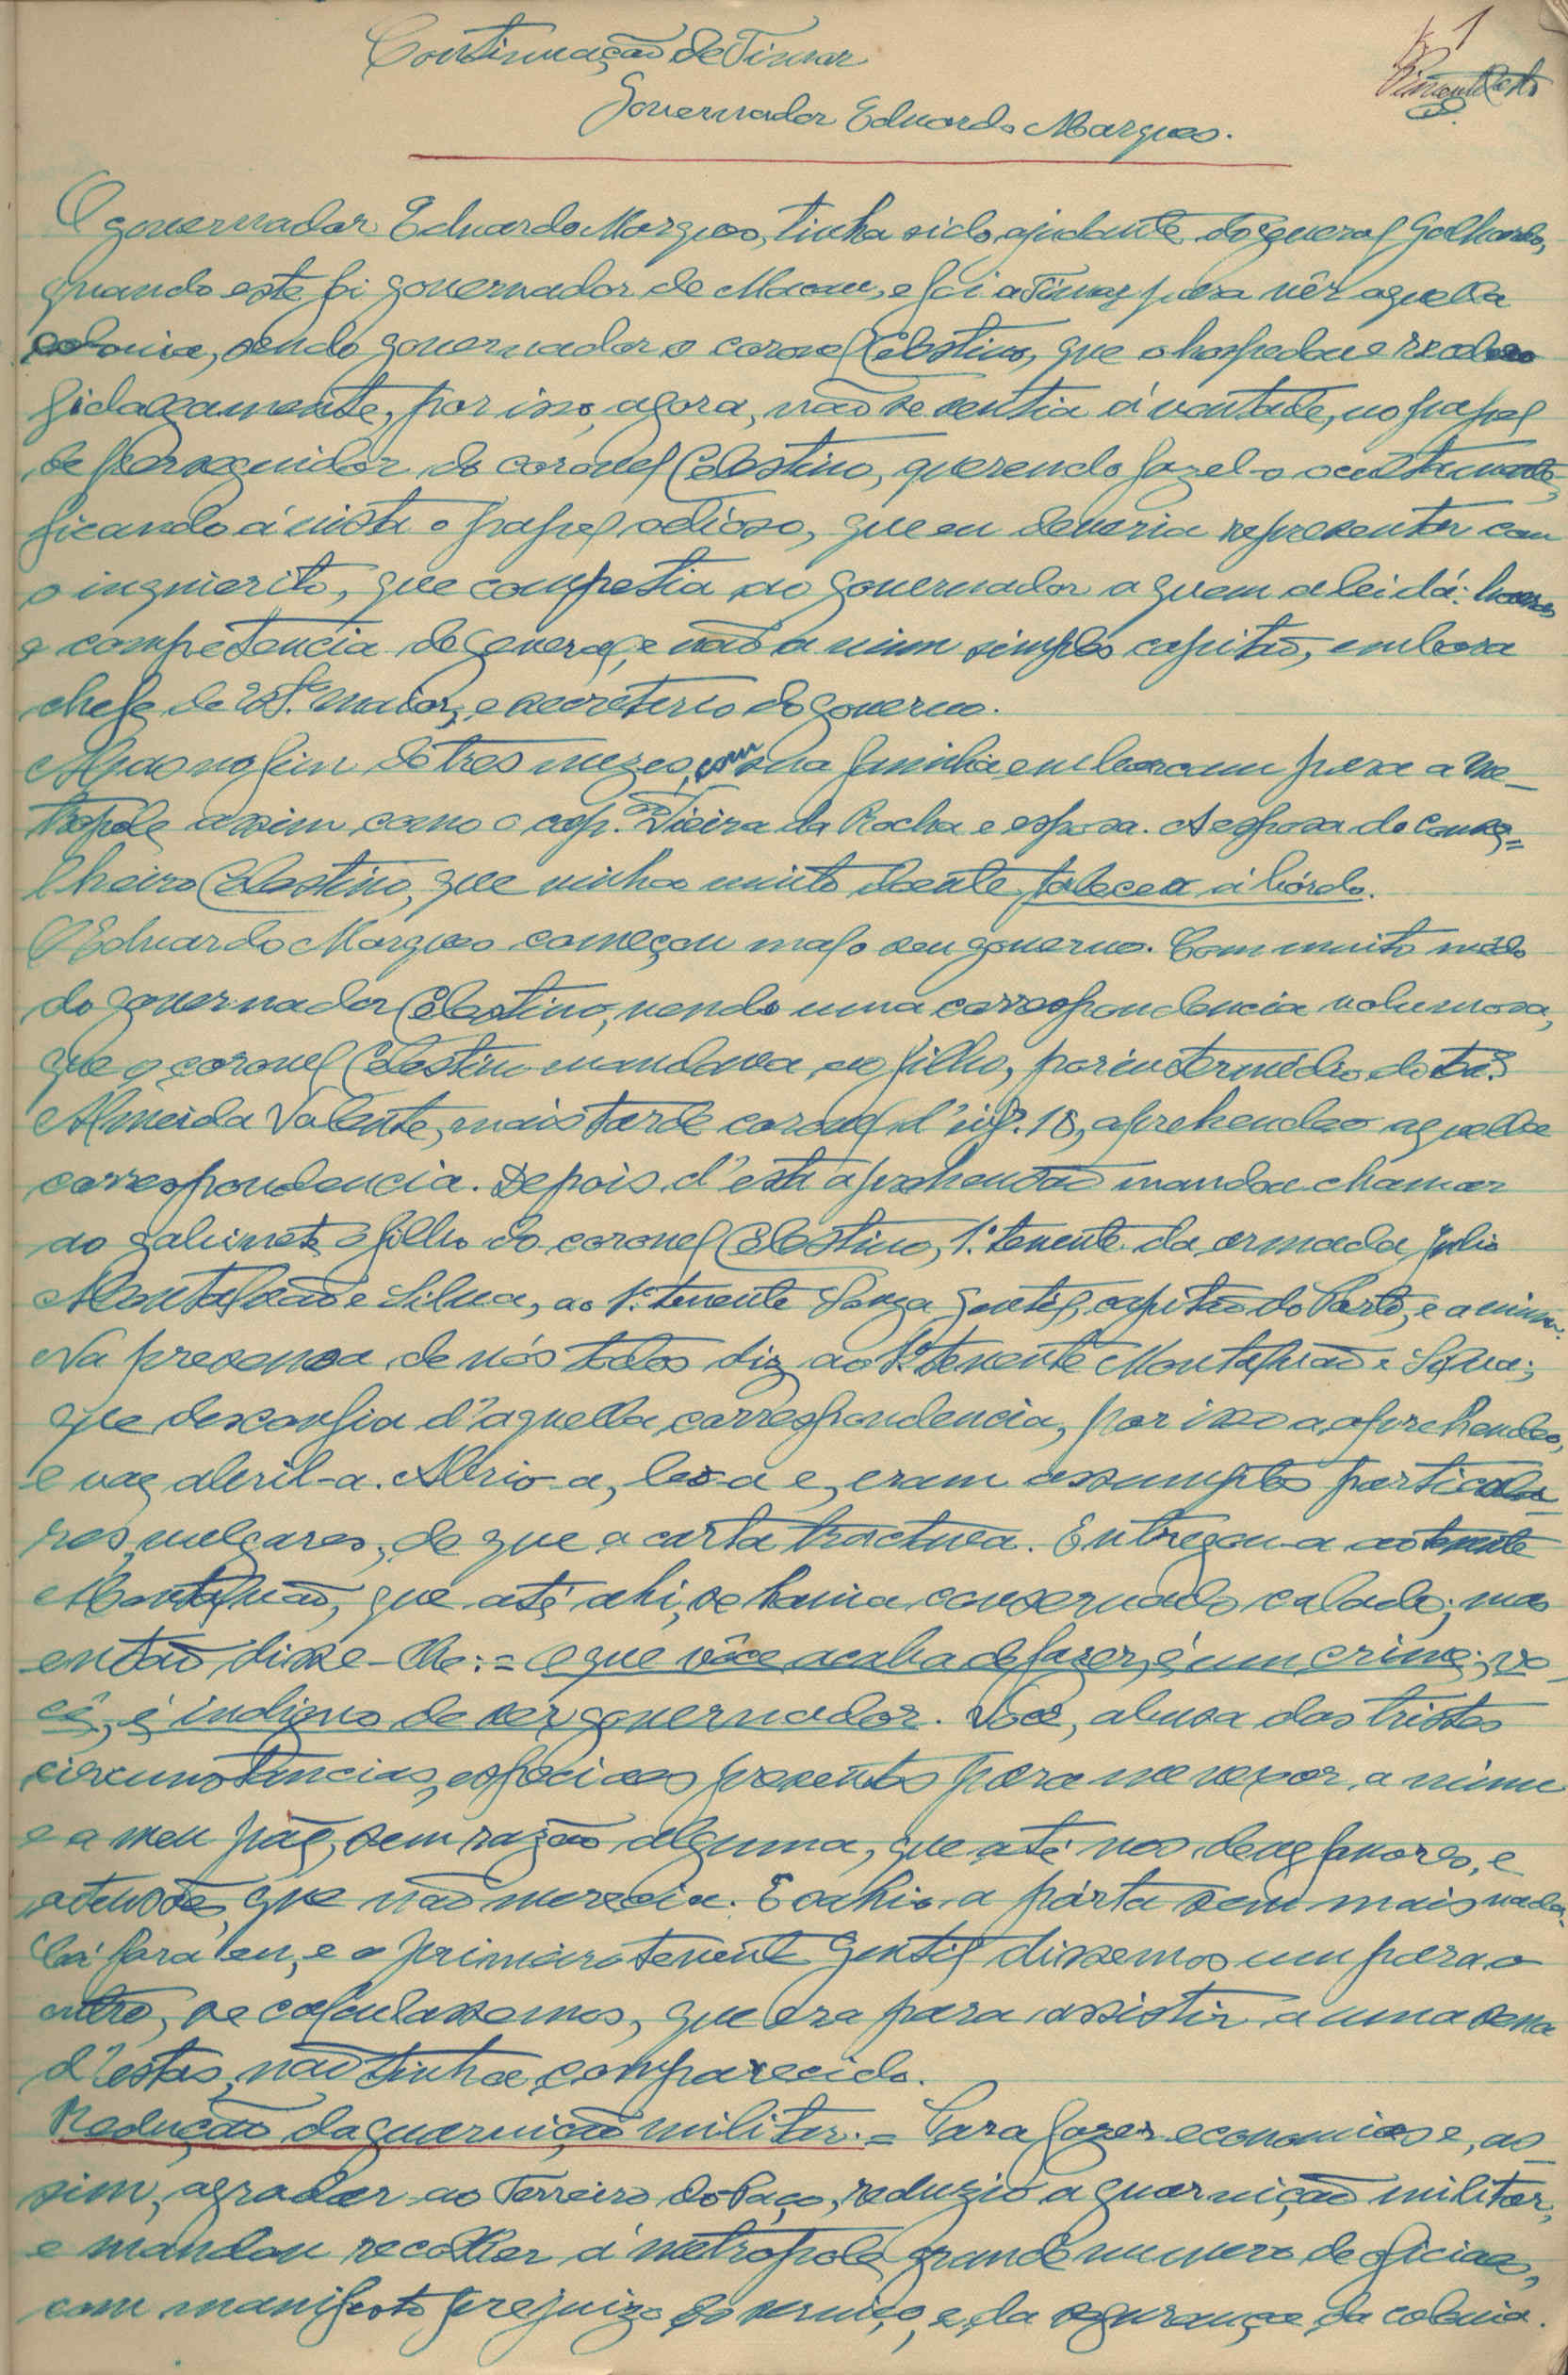 Continuação de Timor
1
Governador Eduardo Marques.
O governador Eduardo Marques, tinha sido ajudante do general Galhardo,
quando este foi governador de Macau, e foi a Timor para vêr aquella
colonia, sendo governador o coronel Celestino, que o hospedou e
fidalgamente, por isso, agora, não se sentia á vontade, no papel
de perseguidor do coronel Celestino, querendo fazel-o occultamente,
ficando á vista o papel odioso, que eu deveria representar com
o inquierito, que competia ao governador a quem a lei dá: honras
e competencia de general, e não a mim simples capitão, embora
chefe de Est. maior, e secreterio do governo.
Mas no fim de tres mezes, com sua familia embarcam para a me-
tropole assim como o cap. Vieira da Rocha e esposa. A esposa do conse=
lheiro Celestino, que vinha muito doente, faleceu á bórdo.
O Eduardo Marques começou mal o seu governo. Com muito mêdo
do governador Celestino, vendo uma correspondencia volumosa,
que o coronel Celestino mandava ao filho, por intermédio do
Almeida Valente, mais tarde coronel d'inf. 18, aprehendeo aquella
correspondencia. Depois d'esta aprehensão mandou chamar
ao gabinete o filho do coronel Celestino, 1.º tenente da armada Julio
Montalvão e Silva, ao 1.º tenente Souza Gentil, capitão do Porto, e a mim.
Na presensa de nós todos diz ao 1.º tenente Montalvão e Silva;
que desconfia d'aquella correspondencia, por isso a aprehendeo,
e vae abril-a. Abrio-a, leo-a e, eram assumptos particula-
res, vulgares, de que a carta tractava. Entregou-a ao tenente
Montalvão, que até ahi, se havia conservado calado; mas
então disse-lhe: = o que vôce acaba de fazer, é um crime; vo-
cê, é indigno de ser governador. Você, abusa das tristes
circunstancias, especiaes presentes para me vexar, a mim
e a meu páe, sem razão alguma, que até nos deve favores, e
atensões, que não merecia. E sahio a pórta sem mais nada.
Cá fora eu, e o primeiro tenente Gentil dissemos um para o
outro, se calculassemos, que era para assistir a uma sena
d'estas, não tinha comparecido.
Redução da guarnição militar. = Para fazer economias e, as-
sim, agradar ao Terreiro do Paço, reduzio a guarnição militar,
e mandou recolher á metrópole, grande numero de oficiaes,
com manifesto prejuizo do serviço, e da segurança da colonia.